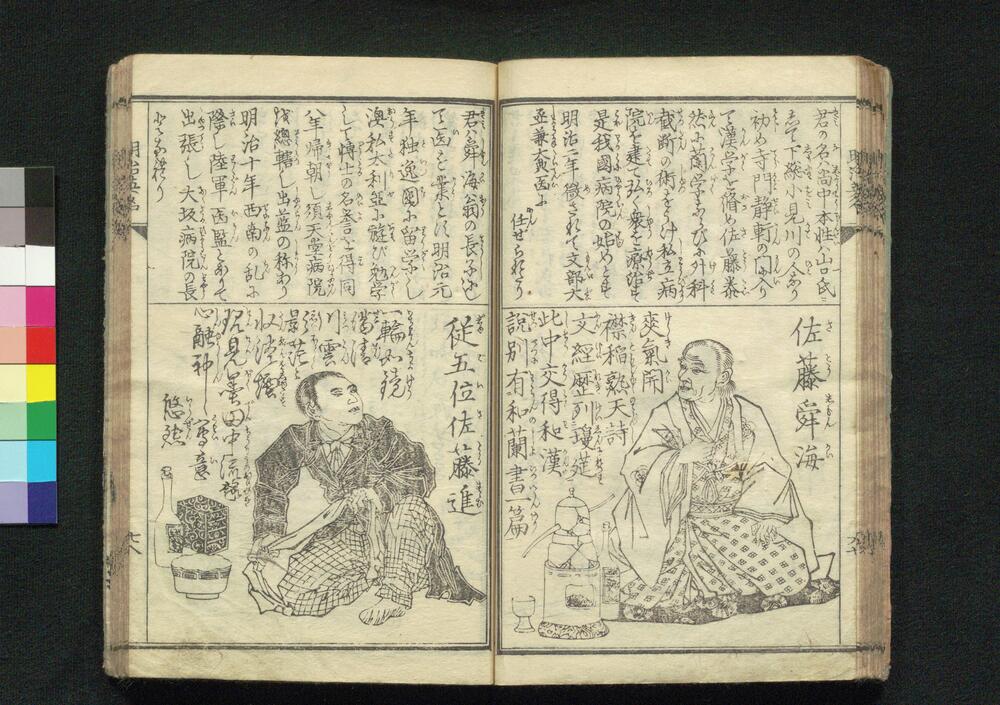 君の名ハ尚中本姓ハ山口氏ニ
して下総小見川の人なり
初め寺門静軒の門ニ入り
て漢学を脩め佐藤泰
然に蘭学をまなび外科
截断の術をうけ私立病
院を建て弘く衆を療治す
是我國病院の始めとす
明治二年徴されて文部大
丞兼大典医に
任せられたり
佐藤舜海
爽氣開
襟稲熟天詩
文經歴列瓊莚
此中交得和漢
説別有和蘭書一篇
君ハ舜海翁の長子にし
て医を業とす明治元
年独逸國に留学し
澳私太利亜に遊び勉学
して博士の名誉を得同
八年帰朝し須天堂病院
を総轄し出藍の称あり
明治十年西南の乱に
際し陸軍医監となりて
出張し大坂病院の長
となれり
従五位佐藤進
一輪如鏡
川雲
心融神
悠然
明治英名